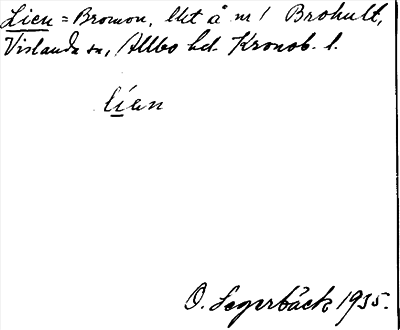 Lien = Bromon, lht å nr 1 Brohult,
Vislanda sn, Allbo hd. Kronob. l.
líən
O. Segerbäck 1935.